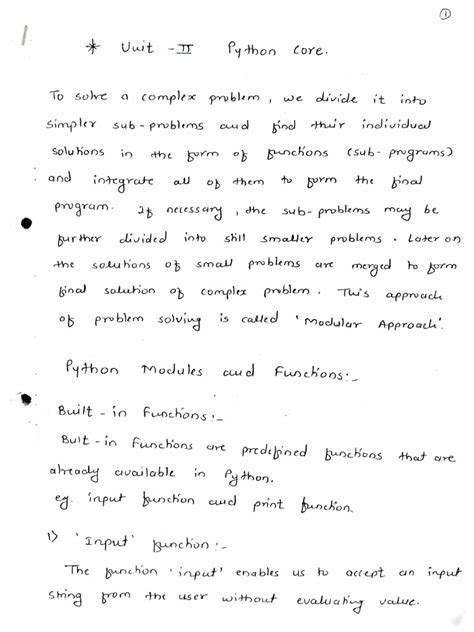 1
* Unit - II Python core.
To solve a complex problem, we divide it into
simpler sub-problems and find their individual
solutions in the form of functions (sub-programs)
and integrate all of them to form the final
program. If necessary, the sub-problems may be
further divided into still smaller problems. Later on
the solutions of small problems are merged to form
final solution of complex problem. This approach
of problem solving is called 'Modular Approach'.
Python Modules and Functions:-
Built-in Functions:-
Built-in Functions are predefined functions that are
already available in Python.
eg. input function and print function.
1) 'Input' function:-
The function 'input' enables us to accept an input
string from the user without evaluating value.